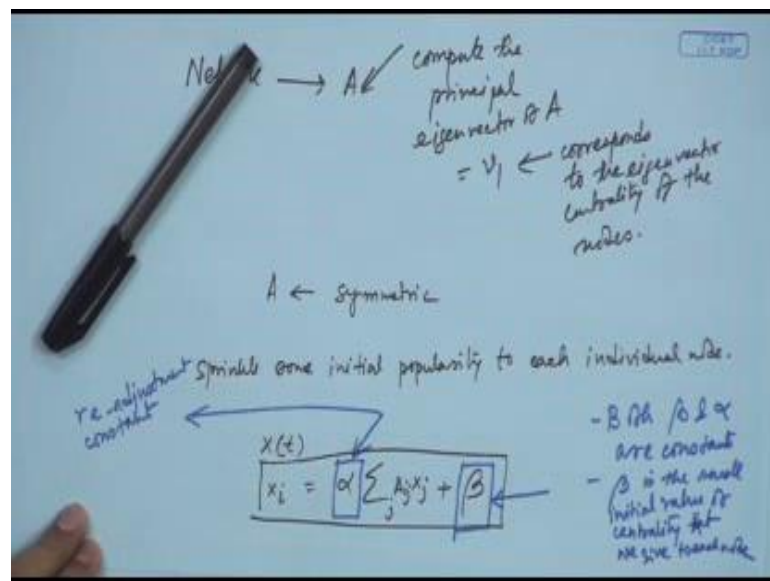 Net → A
compute the
principal
eigenvector of A
= v₁ ← corresponds
to the eigenvector
centrality of the
nodes.
A ← symmetric
sprinkle some initial popularity to each individual node.
re-adjustment
constant
X(t)
xᵢ = α ∑ⱼ Aᵢⱼxⱼ + β
- Both β & α
are constant
- β is the small
initial value of
centrality that
we give to each node